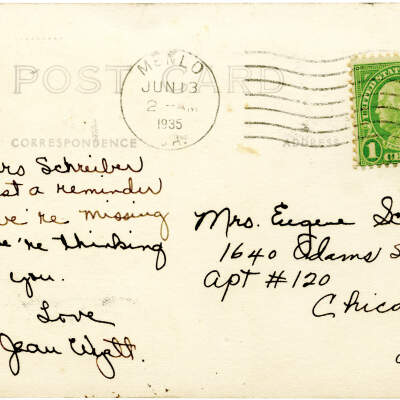 POST CARD
MENLO
JUN 13
2 - AM
1935
CORRESPONDENCE
ADDRESS
UNITED STATES
1
rs Schreiber
st a reminder
ve're missing
e're thinking
you.
Love
Jean Wyatt.
Mrs. Eugene Sc
1640 Adams S
Apt #120
Chica